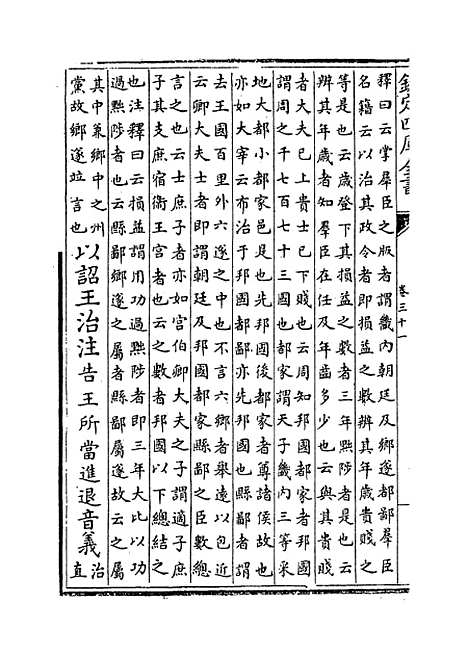 欽定四庫全書
卷三十一
釋曰云掌羣臣之版者謂畿内朝廷及鄉遂都鄙羣臣
名籍云以治其政令者即損益之數辨其年歲貴賤之
等是也云歲登下其損益之數者三年黜陟者是也云
辨其年歲者知羣臣在任及年齒多少也云與其貴賤
者大夫已上貴士已下賤也云周知邦國都家者邦國
謂周之千七百七十三國也都家謂天子畿内三等采
地大都小都家邑是也先邦國後都家者尊諸侯故也
亦如大宰云布治于邦國都鄙亦先邦國也縣鄙者謂
去王國百里外六遂之中也不言六鄉者舉遠以包近
云卿大夫士者即謂朝廷及邦國都家縣鄙之臣數總
言之也云士庶子者亦如宮伯卿大夫之子謂適子庶
子其支庶宿衞王宮者也云之數者邦國以下總結之
也注釋曰云損益謂用功過黜陟者即三年大比以功
過黜陟者也云縣鄙鄉遂之屬者縣鄙屬遂故云之屬
其中兼鄉中之州
黨故鄉遂竝言也
以詔王治注告王所當進退音義
治
直